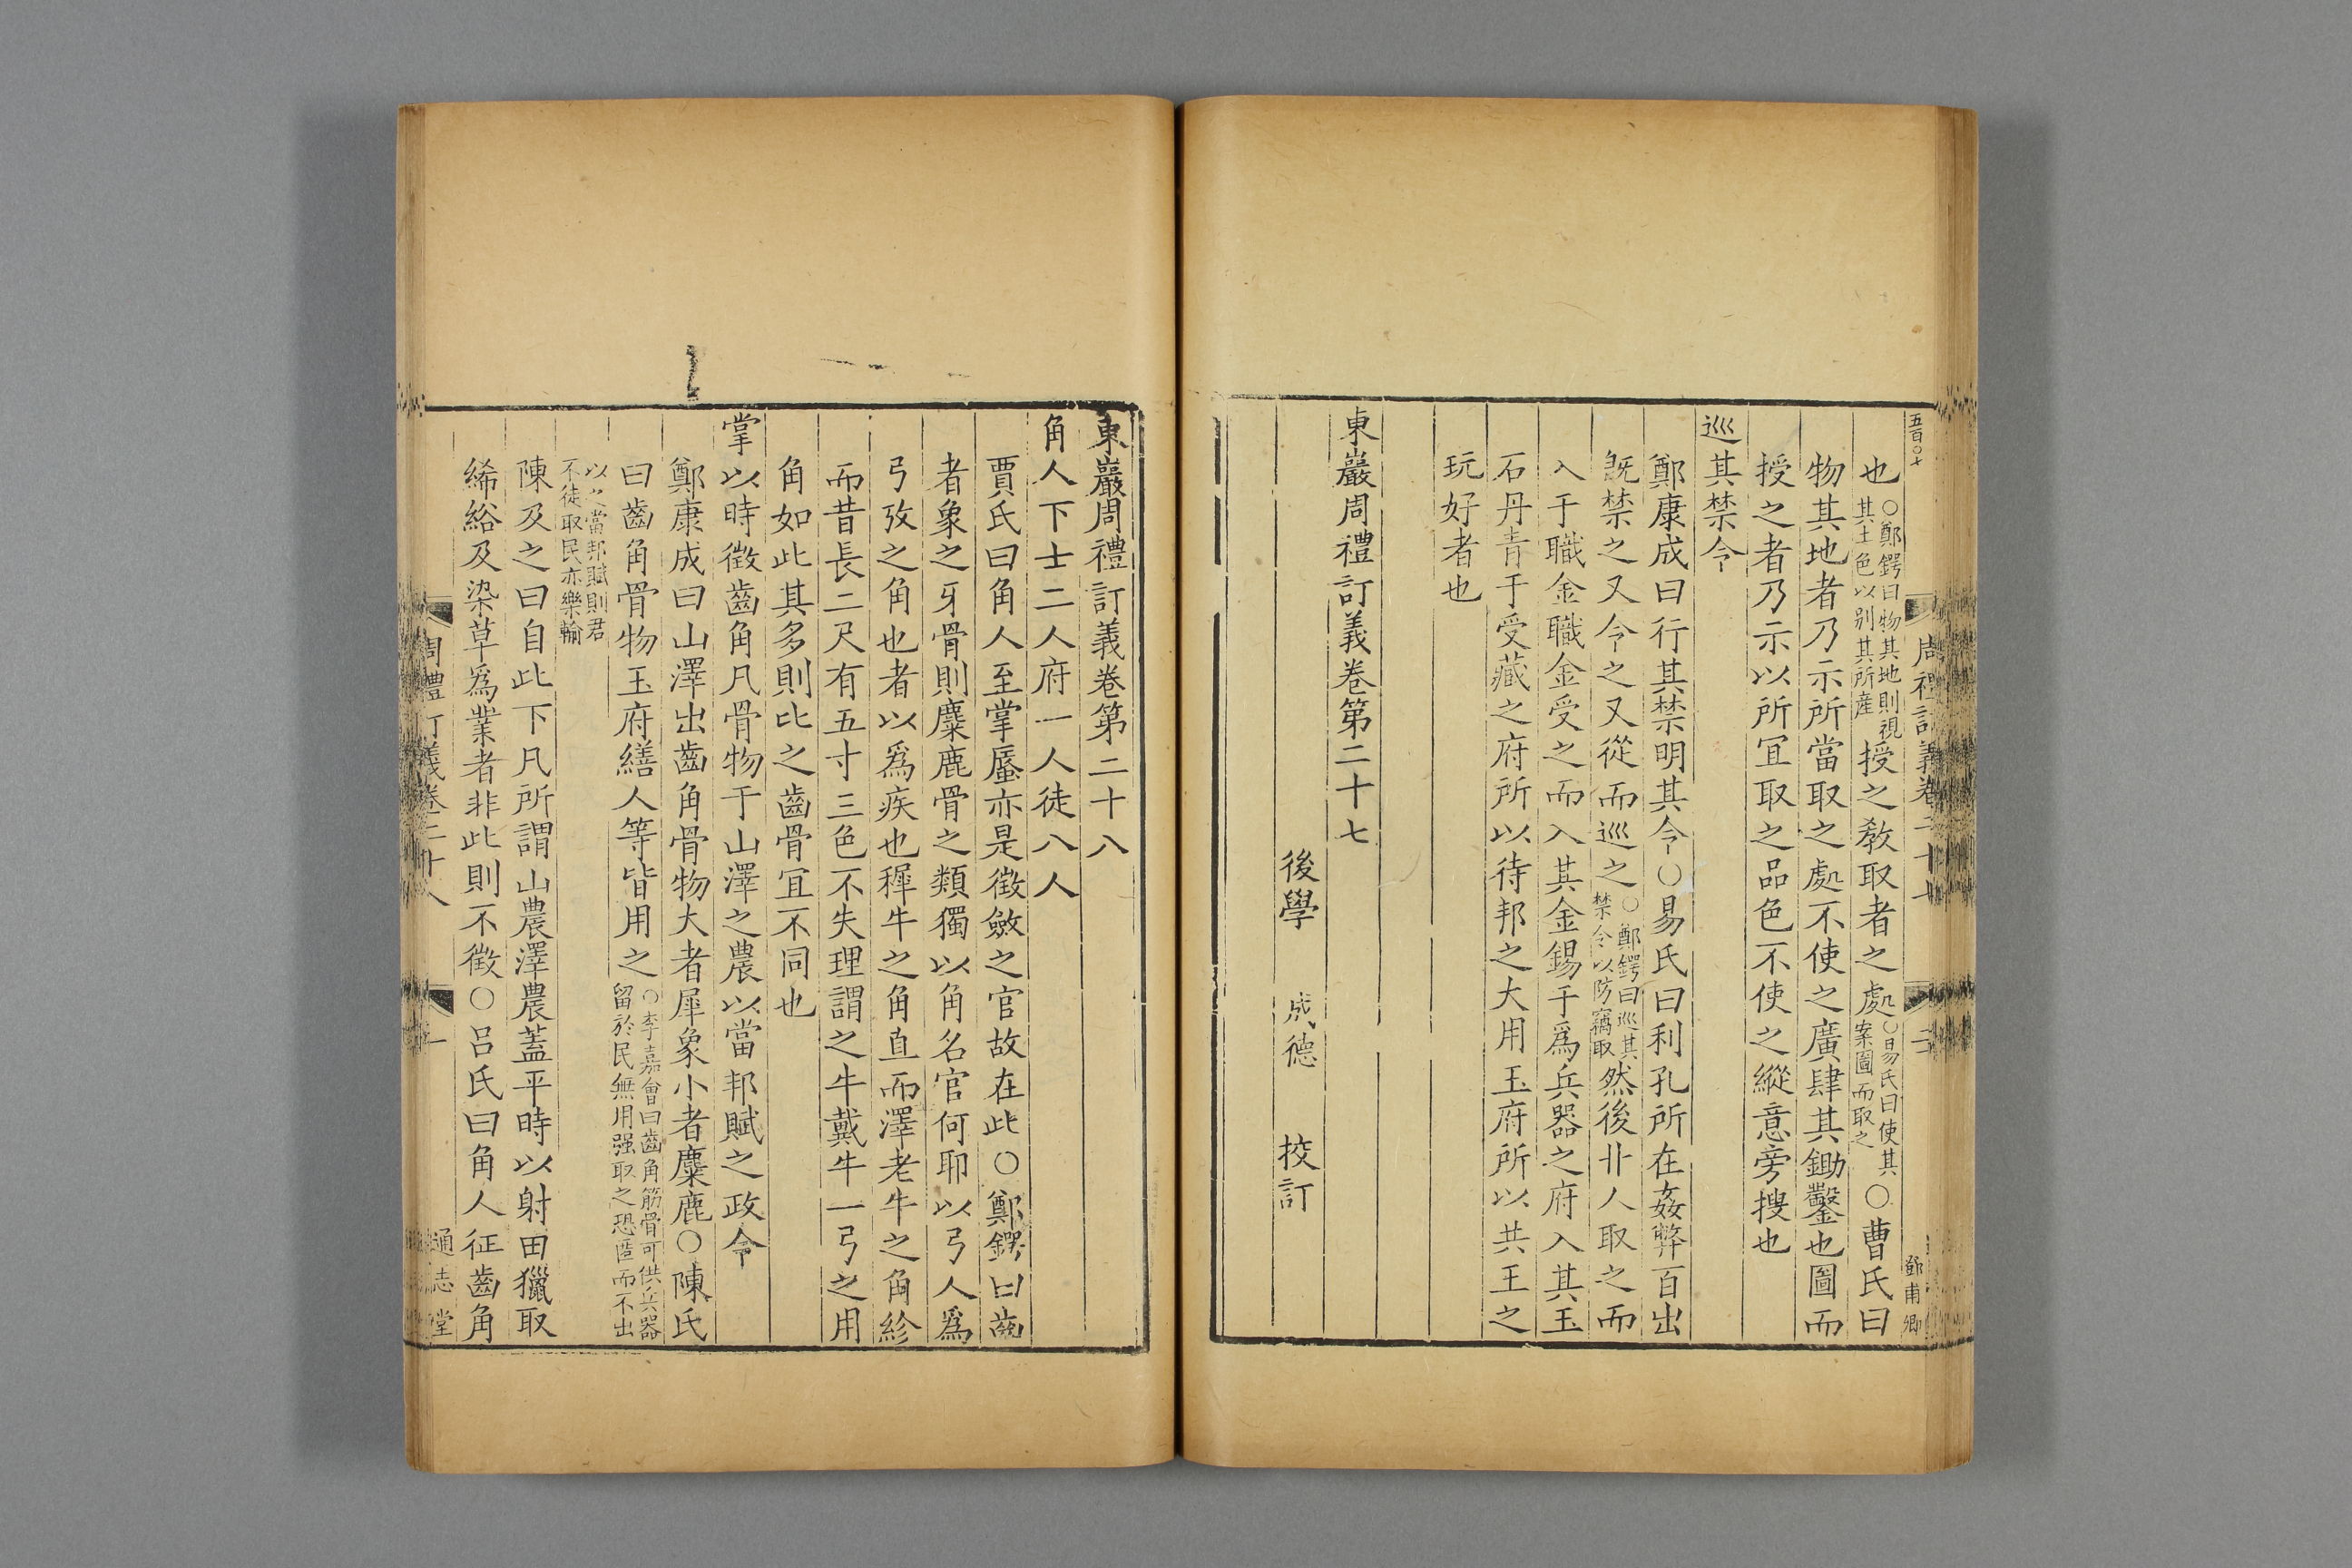 五百〇十
周禮訂義卷二十七
二
鄧甫卿
也○鄭鍔曰物其地則視其土色以别其所產授之敎取者之處○易氏曰使其案圖而取之○曹氏曰
物其地者乃示所當取之處不使之廣肆其鋤鑿也圖而
授之者乃示以所宜取之品色不使之縱意旁搜也
巡其禁令
鄭康成曰行其禁明其令○易氏曰利孔所在姦弊百出
旣禁之又令之又從而巡之○鄭鍔曰巡其禁令以防竊取然後丱人取之而
入于職金職金受之而入其金錫于爲兵器之府入其玉
石丹青于受藏之府所以待邦之大用玉府所以共王之
玩好者也
東巖周禮訂義卷第二十七
後學 成德 挍訂
東巖周禮訂義卷第二十八
角人下士二人府一人徒八人
賈氏曰角人至掌蜃亦是徵斂之官故在此○鄭鍔曰齒
者象之牙骨則麋鹿骨之類獨以角名官何耶以弓人爲
弓攷之角也者以爲疾也穉牛之角直而澤老牛之角紾
而昔長二尺有五寸三色不失理謂之牛戴牛一弓之用
角如此其多則比之齒骨宜不同也
掌以時徵齒角凡骨物于山澤之農以當邦賦之政令
鄭康成曰山澤出齒角骨物大者犀象小者麋鹿○陳氏
曰齒角骨物玉府繕人等皆用之○李嘉會曰齒角筋骨可供兵器留於民無用强取之恐匿而不出
以之當邦賦則君不徒取民亦樂輸
陳及之曰自此下凡所謂山農澤農蓋平時以射田獵取
絺綌及染草爲業者非此則不徵○呂氏曰角人征齒角
周禮訂義卷二十八
一
通志堂